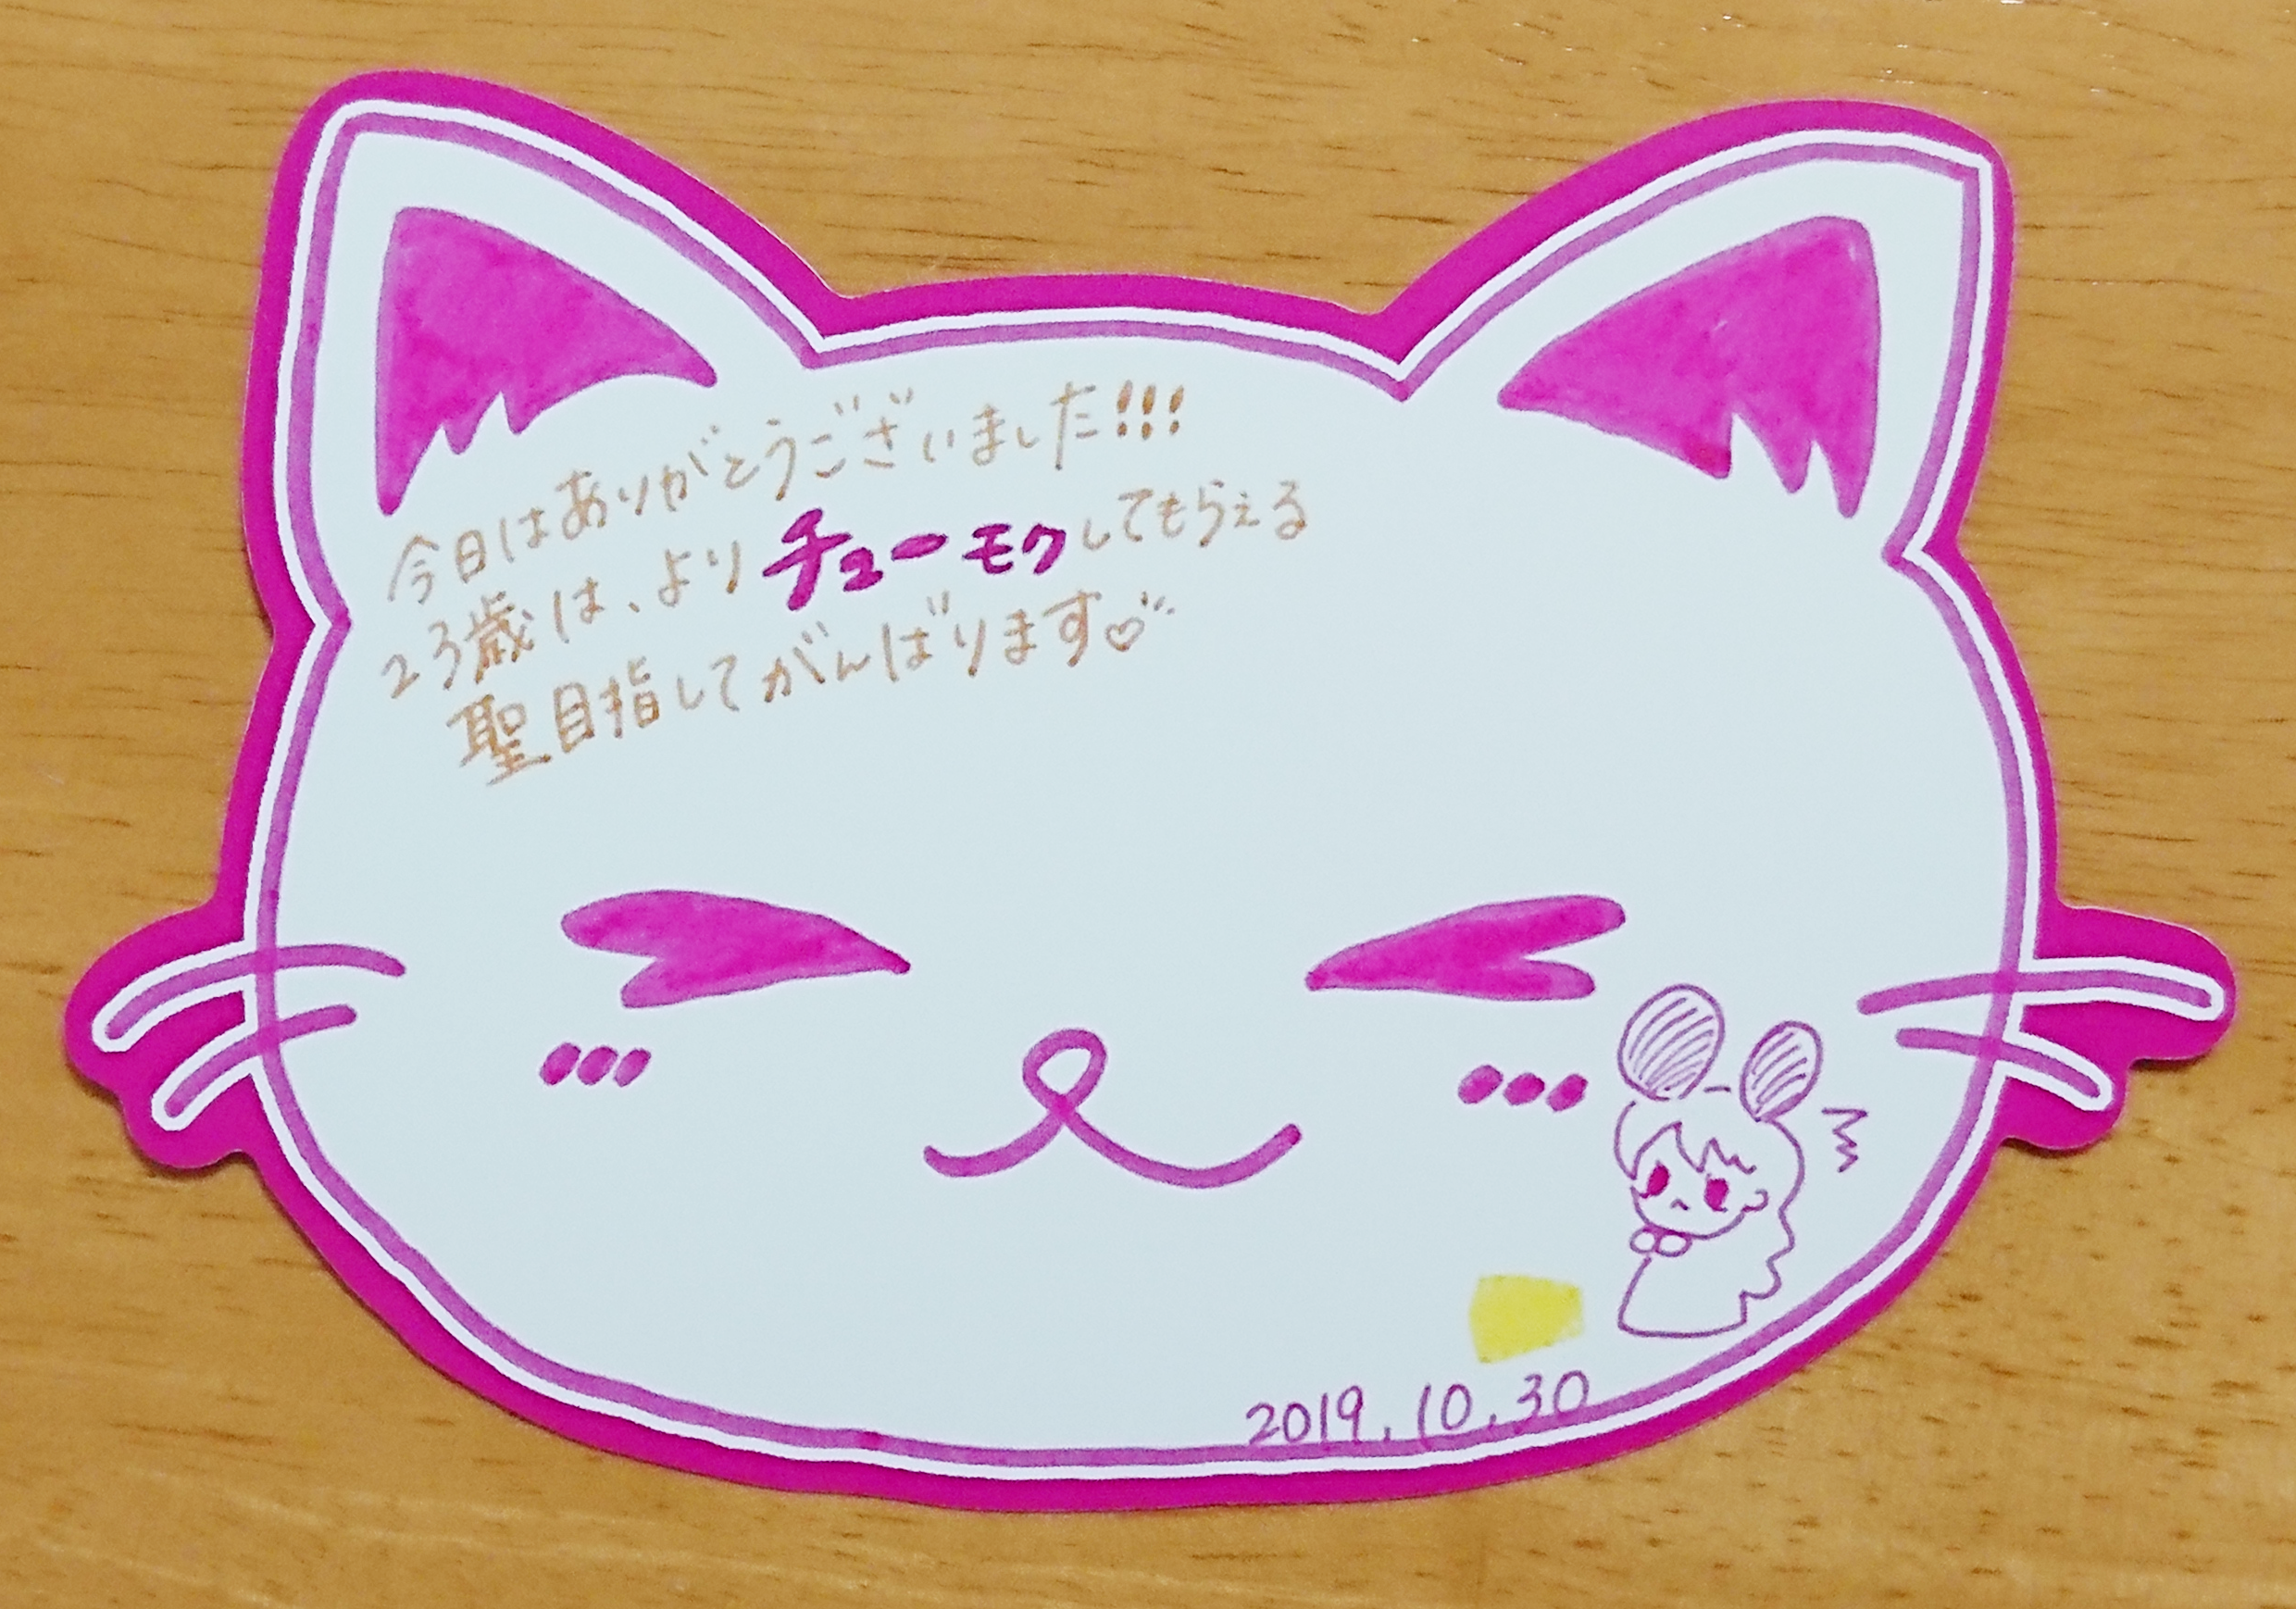 今日はありがとうございました!!!
23歳は、よりチューモクしてもらえる
聖目指してがんばります♡
2019.10.30